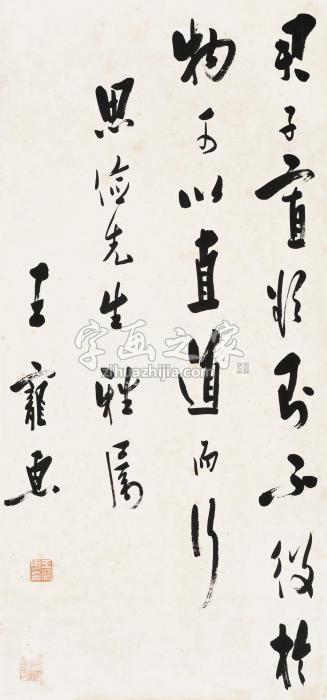 君子寡欲則不役於
物可以直道而行
思儉先生雅屬
王寵惠
字画之家
zihuazhijia.com